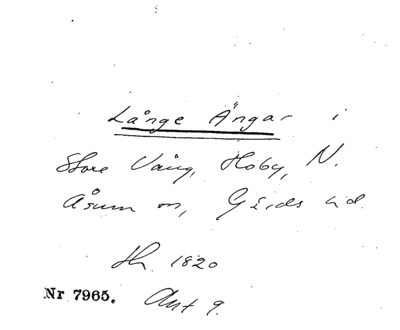 Långe Ängar i
Store Vång, Hoby, N.
Åsum sn, Gärds hd.
Sk. 1820
Nr 7965. Akt 9.